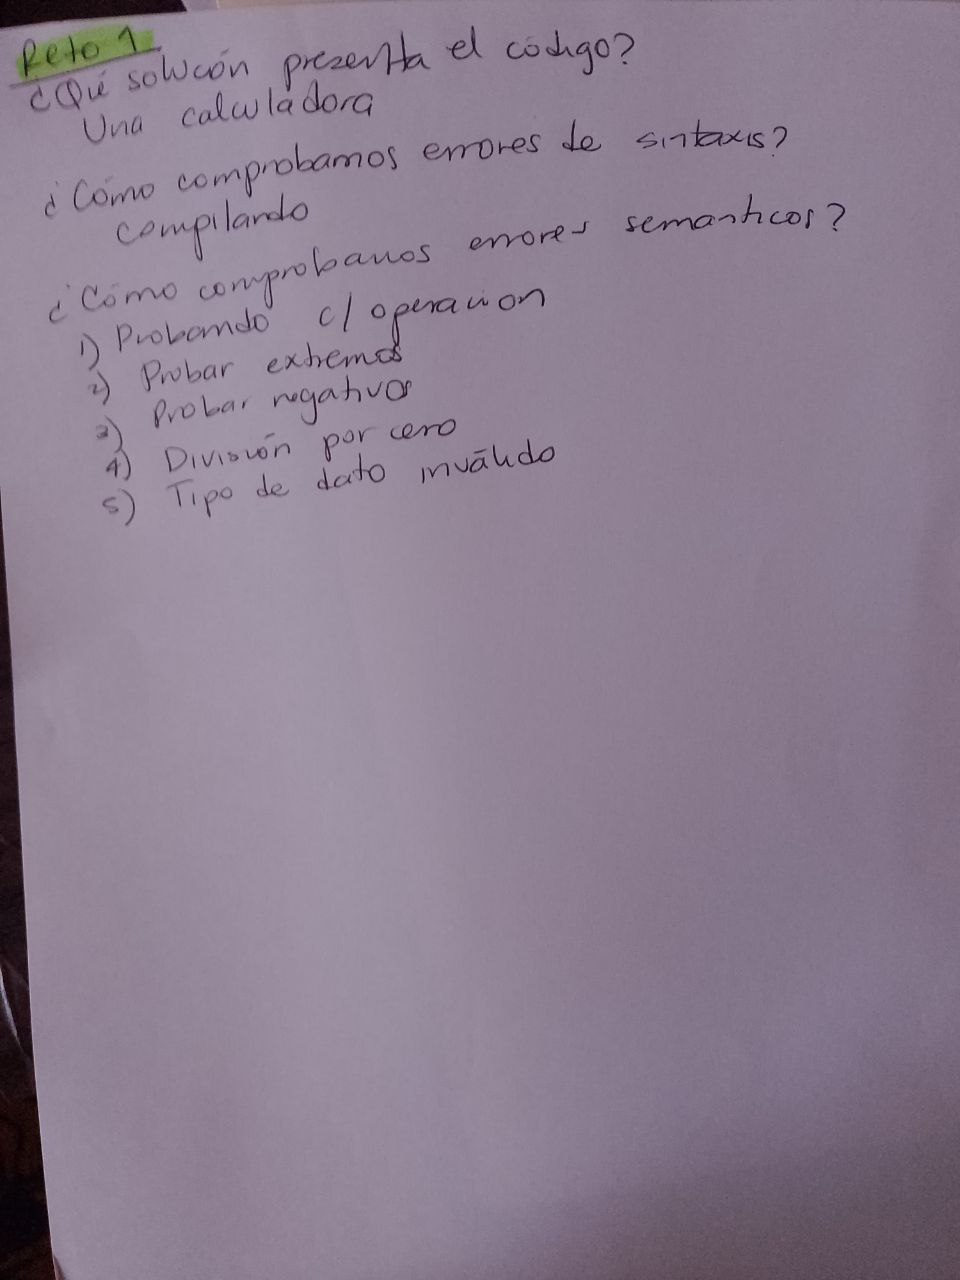 Reto 1
¿Qué solución prezenta el código?
Una calculadora
¿Cómo comprobamos errores de sintaxis?
compilando
¿Cómo comprobamos errores semanticos?
1) Probando c/ operacion
2) Probar extremos
3) Probar negativos
4) División por cero
5) Tipo de dato inválido